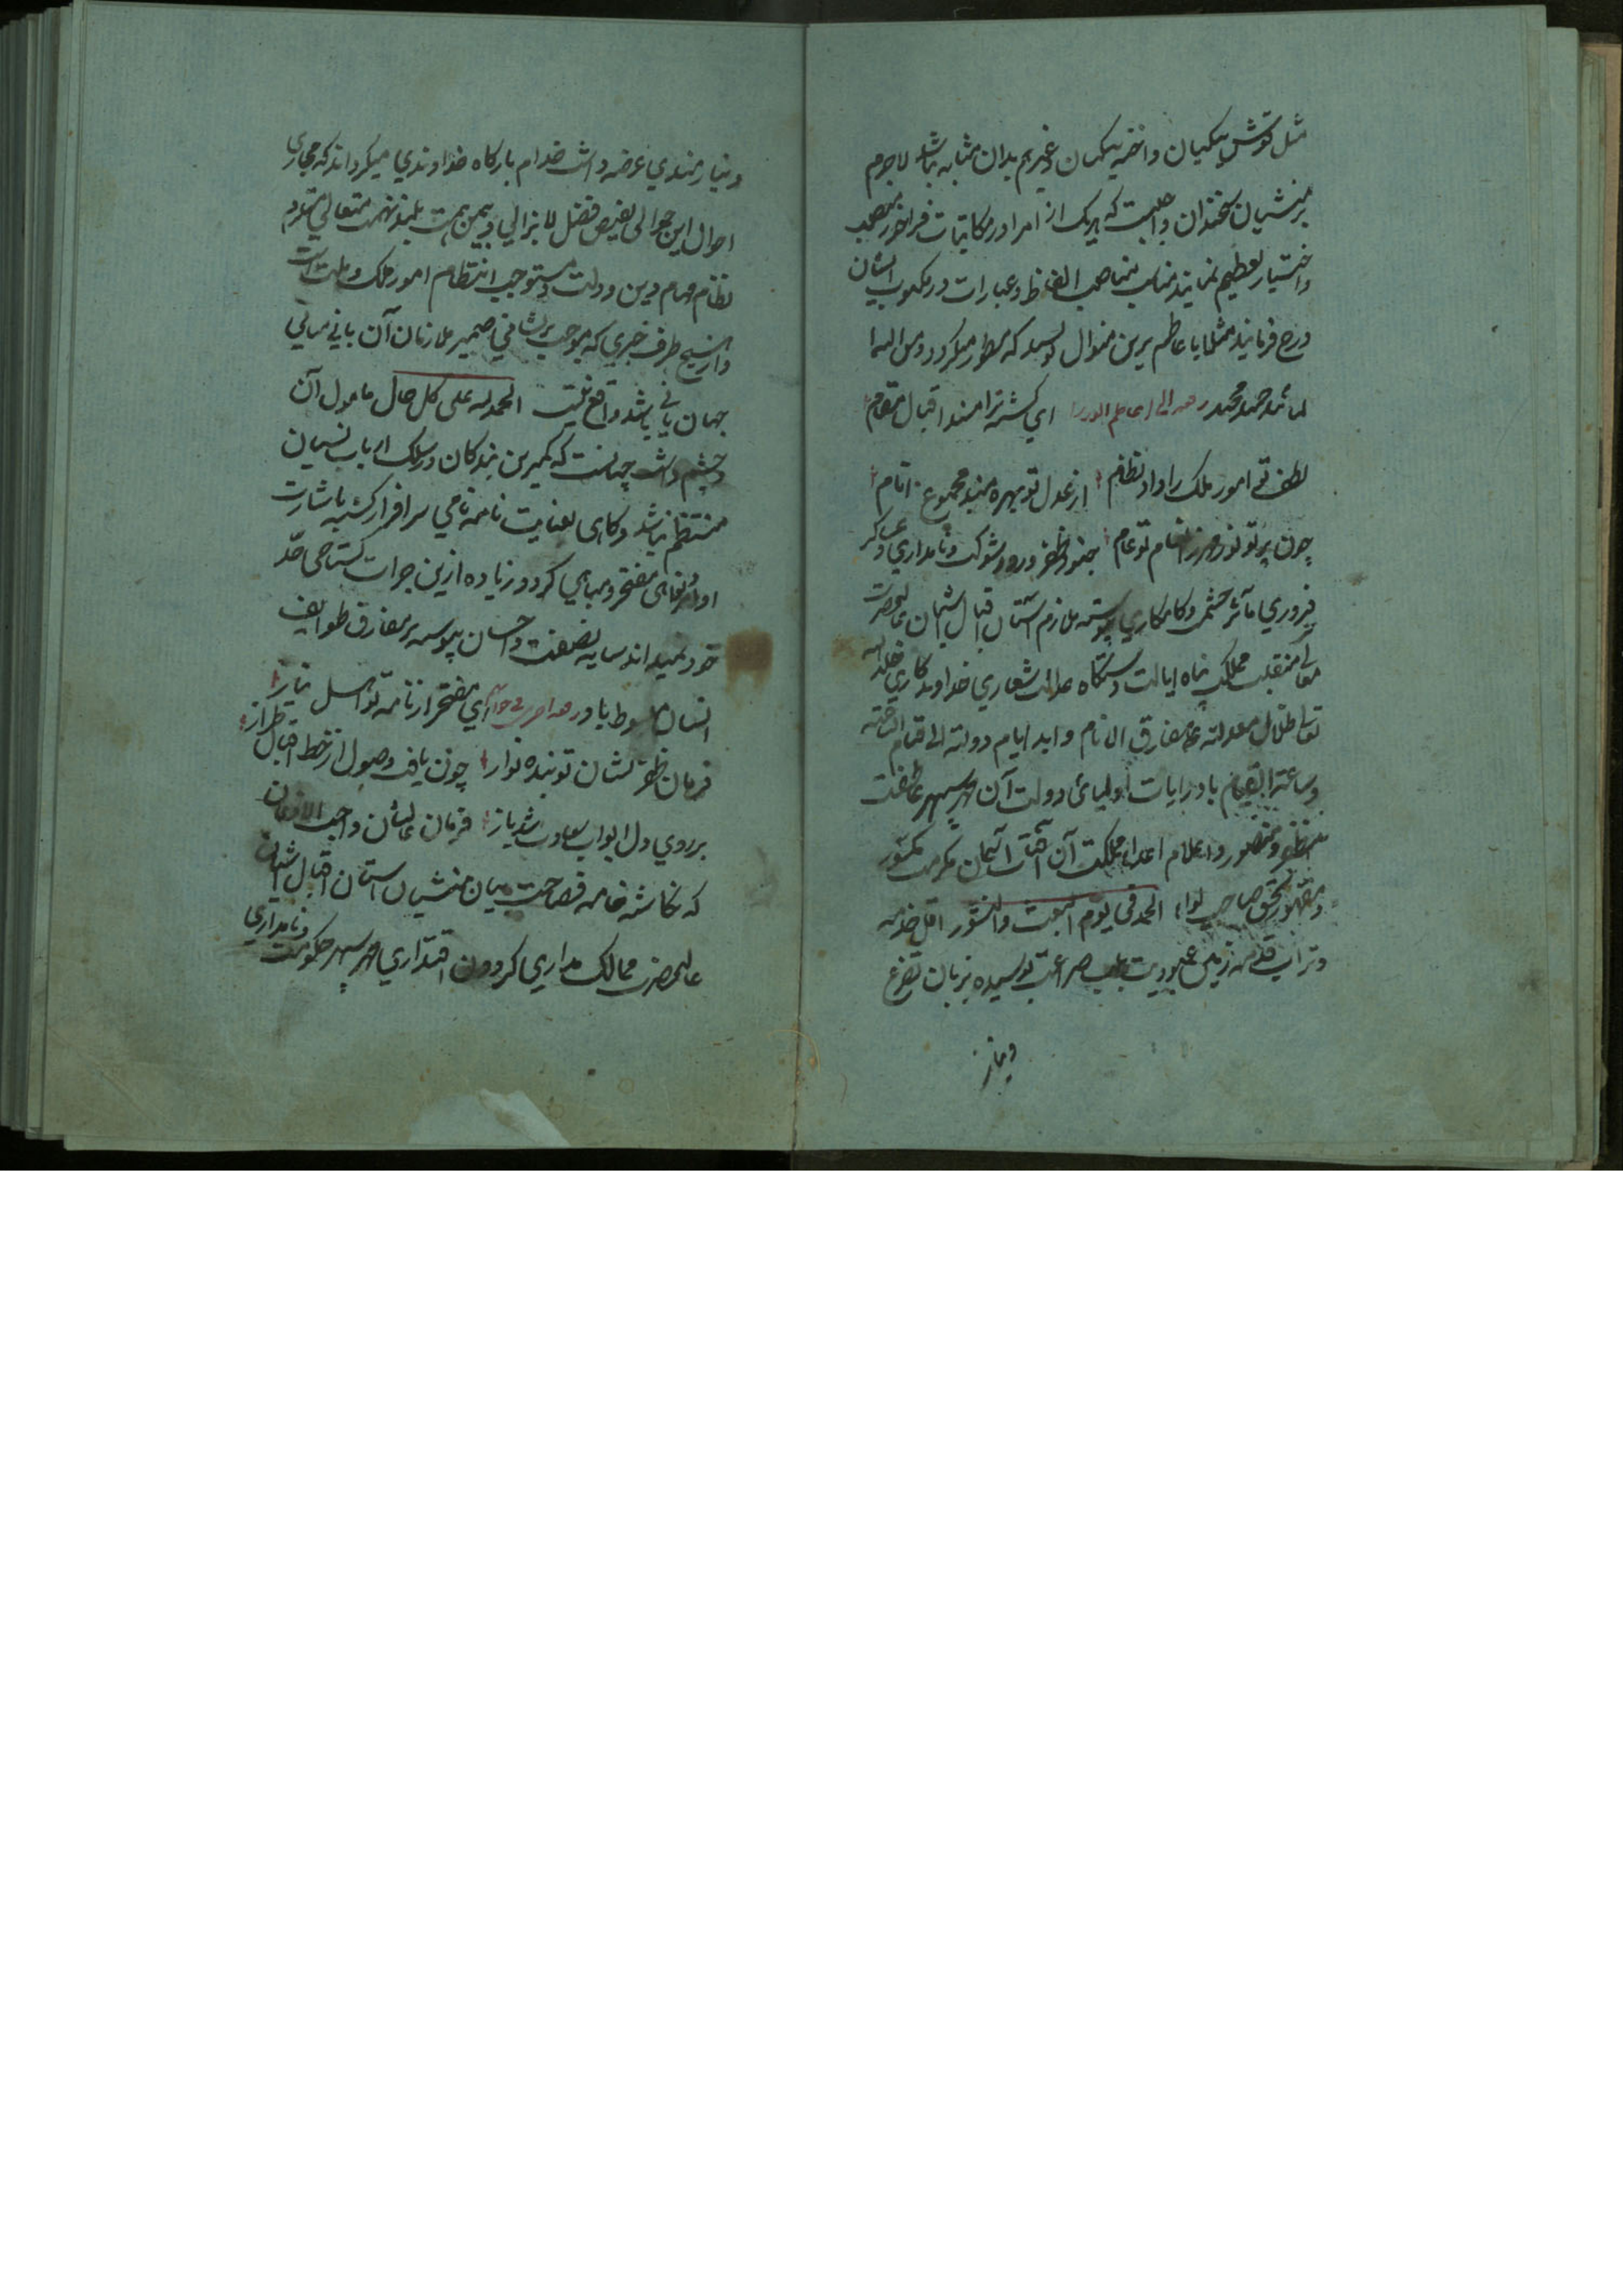 مثل قوش بیکیان و اخته بیکیان و غیرهم بدان مثابه باشد لاجرم
بر منشیان سخندان واجبست که هر یک از امرا در مکاتبات فراخور منصب
و اختیار تعظیم نمایند مناسب مناصب الفاظ و عبارات در مکتوب ایشان
درج فرمایند مثلا با عاظم برین منوال نویسند که مسطور میگردد
ای گشته ترا مسند اقبال مقام
لطف تو امور ملک را داد نظام از عدل تو بهره مند مجموع انام
چون پرتو نور مهر انعام تو عام جنود ظفر ورود شوکت و نامداری و عساکر
فیروزی مآثر حشمت و کامکاری پیوسته ملازم آستان اقبال آشیان عالیحضرت
معالی منقبت مملکت پناه ایالت دستگاه عدالت شعاری خداوندکاری خلد الله
تعالی ظلال معدلته علی مفارق الانام و ابد ایام دولته الی قیام الساعة
و ساعة القیام باد رایات اولیای دولت آن مهر سپهر عاطفت
مظفر و منصور و اعلام اعداء مملکت آن آفتاب آسمان مکرمت مکسور
و مقهور بحق صاحب لواء الحمد فی یوم البعث والنشور اقل خدمه
و تراب قدمه زمین عبودیت بلب ضراعت بوسیده بزبان تضرع
و نیاز
و نیازمندی عرضه داشت خدام بارگاه خداوندی میگرداند که مجاری
احوال این حوالی بفیض فضل لایزالی و بیمن همت بلند نهمت متعالی
نظام مهام دین و دولت و مستوجب انتظام امور ملک و ملت است
و از هیچ طرف خبری که موجب پریشانی ضمیر ملازمان آن بانی مبانی
جهان بانی باشد واقع نیست الحمد لله علی کل حال مامول آن
و چشم داشت چنانست که کمترین بندگان در سلک ارباب نسیان
منتظم نباشد و گاهی بعنایت نامه نامی سرافراز گشته باشارت
اوامر و نواهی مفتخر و مباهی گردد زیاده ازین جرات گستاخی حد
خود نمیداند سایه نصفت و احسان پیوسته بر مفارق طوایف
انسان مبسوط باد ای مفتخر از نامه تو اهل نیاز
فرمان ظفر نشان تو بنده نواز چون یافت وصول از خط اقبال طراز
بر روی دل ابواب سعادت شد باز فرمان عالیشان واجب الاذعان
که نگاشته خامه فصاحت بیان منشیان آستان اقبال آشیان
عالیحضرت ممالک مداری گردون اقتداری مهر سپهر حکومت و نامداری